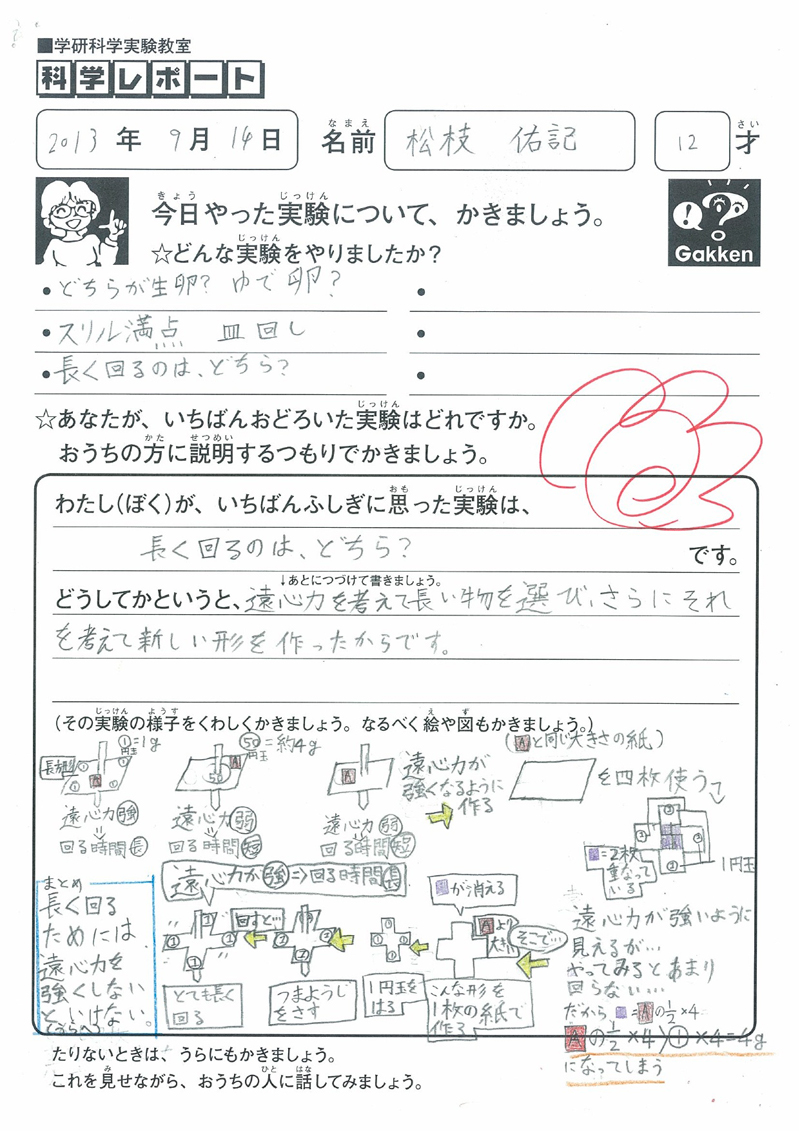 ■学研科学実験教室
科学レポート
2013年 9月 14日 名前 松枝 佑記 12才
今日やった実験について、かきましょう。
☆どんな実験をやりましたか？
Gakken
•どちらが生卵？ ゆで卵？
•スリル満点 皿回し
•長く回るのは、どちら？
☆あなたが、いちばんおどろいた実験はどれですか。
おうちの方に説明するつもりでかきましょう。
わたし(ぼく)が、いちばんふしぎに思った実験は、
長く回るのは、どちら？ です。
↓あとにつづけて書きましょう。
どうしてかというと、遠心力を考えて長い物を選び、さらにそれ
を考えて新しい形を作ったからです。
(その実験の様子をくわしくかきましょう。なるべく絵や図もかきましょう。)
①円玉=1g
A
遠心力強
回る時間長
50円玉=約4g
A
50
遠心力弱
回る時間短
A
遠心力弱
回る時間短
遠心力が
強くなるように
作る
(Aと同じ大きさの紙)
を四枚使う
=2枚
重なって
いる
1円玉
遠心力が強いように
見えるが…
やってみるとあまり
回らない…
だから =Aの1/2×4
Aの1/2×4 ①×4=4g
になってしまう
そこで…
が消える
Aより
大きい
こんな形を
1枚の紙で
作る
1円玉を
はる
つまようじ
をさす
回すと…
とても長く
回る
遠心力が強⇒回る時間長
まとめ
長く回る
ためには
遠心力を
強くしない
といけない。
たりないときは、うらにもかきましょう。
これを見せながら、おうちの人に話してみましょう。